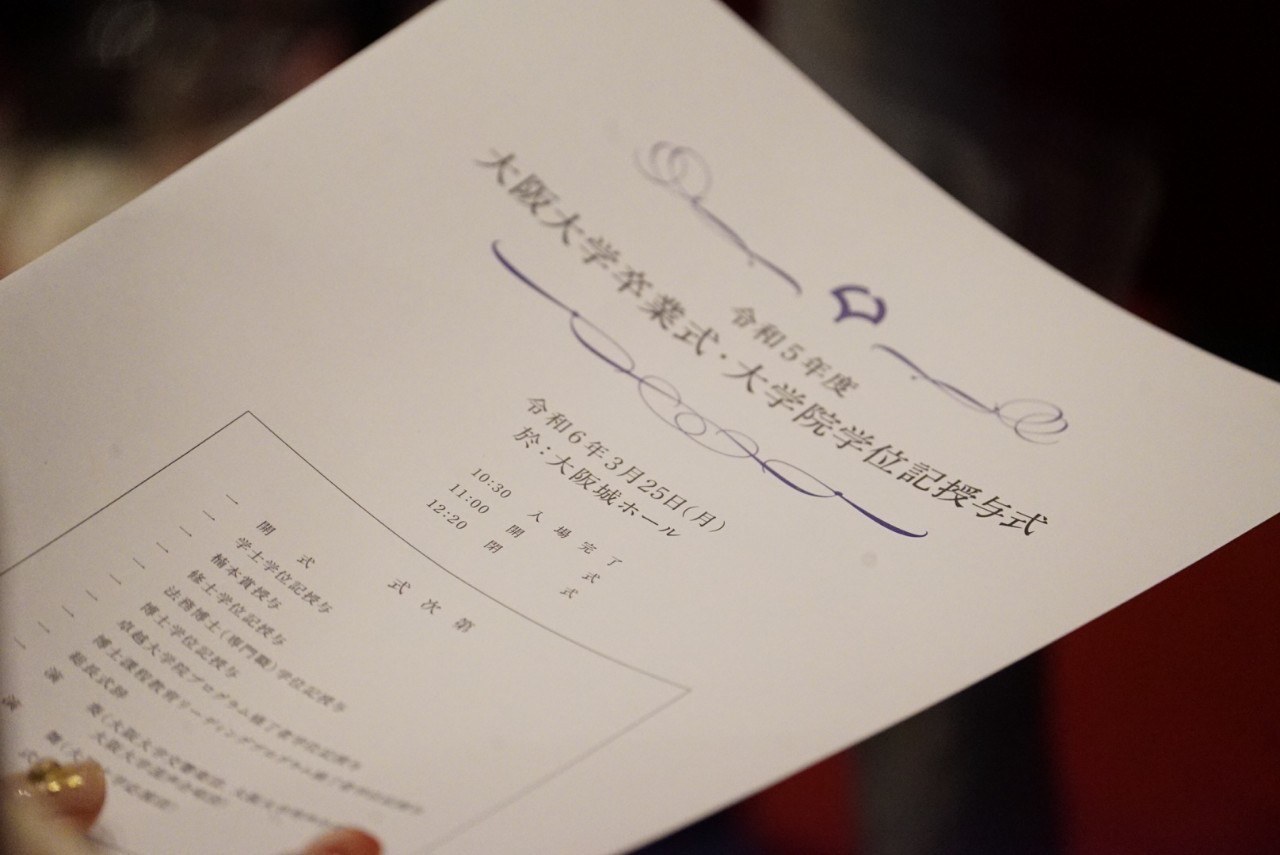 令和5年度
大阪大学卒業式・大学院学位記授与式
令和6年3月25日(月)
於：大阪城ホール
10:30 入場完了
11:00 開式
12:20 閉式
式次第
一 開式
一 学士学位記授与
一 楠本賞授与
一 修士学位記授与
一 法務博士(専門職)学位記授与
一 博士学位記授与
一 卓越大学院プログラム修了者学位記授与
一 博士課程教育リーディングプログラム修了者学位記授与
一 総長式辞
演奏(大阪大学交響楽団、大阪大学
大阪大学混声合唱団
演